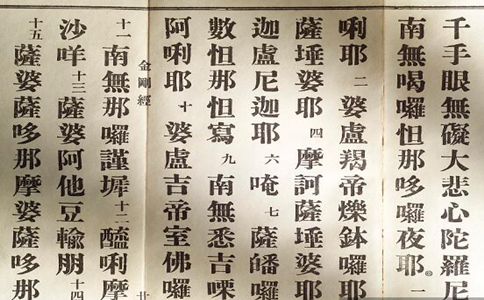 千手眼無礙大悲心陀羅尼
南無喝囉怛那哆囉夜耶 一
唎耶 二 婆盧羯帝爍鉢囉耶
薩埵婆耶 四 摩訶薩埵婆耶
迦盧尼迦耶 六 唵 七 薩皤囉
數怛那怛寫 九 南無悉吉㗚
阿唎耶 十 婆盧吉帝室佛囉
金剛經
十一 南無那囉謹墀 十二 醯唎摩
沙咩 十三 薩婆阿他豆輸朋 十四
十五 薩婆薩哆那摩婆薩哆那